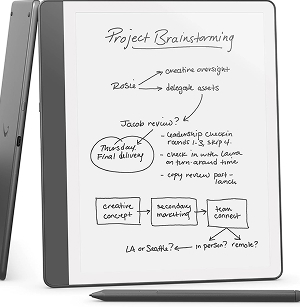 Project Brainstorming
creative oversight
Rosie
delegate assets
Jacob review?
Thursday,
Final delivery
- leadership checkin
rounds 1-3, skip 4.
- check in with Laura
on turn-around time
- copy review part-
launch
creative
concept
secondary
marketing
team
connect
LA or Seattle?
in person?
remote?